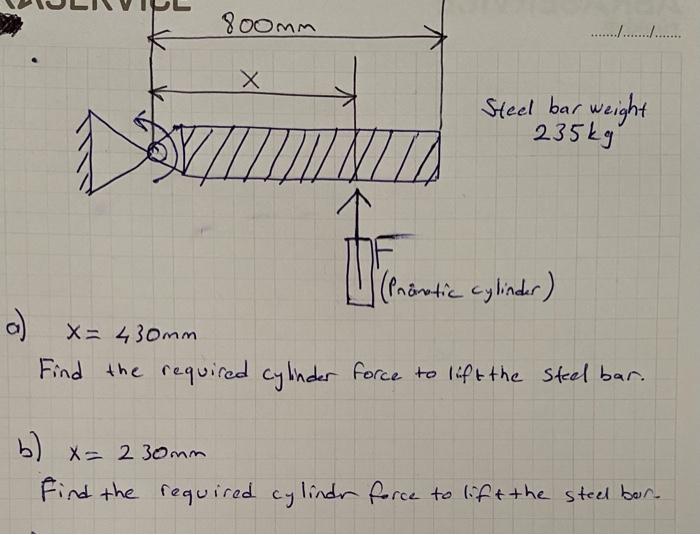 800mm
...../...../.....
X
Steel bar weight
235kg
F
(Pnömatic cylinder)
a) X= 430mm
Find the required cylinder force to lift the steel bar.
b) X= 230mm
Find the required cylindr force to lift the steel bar.